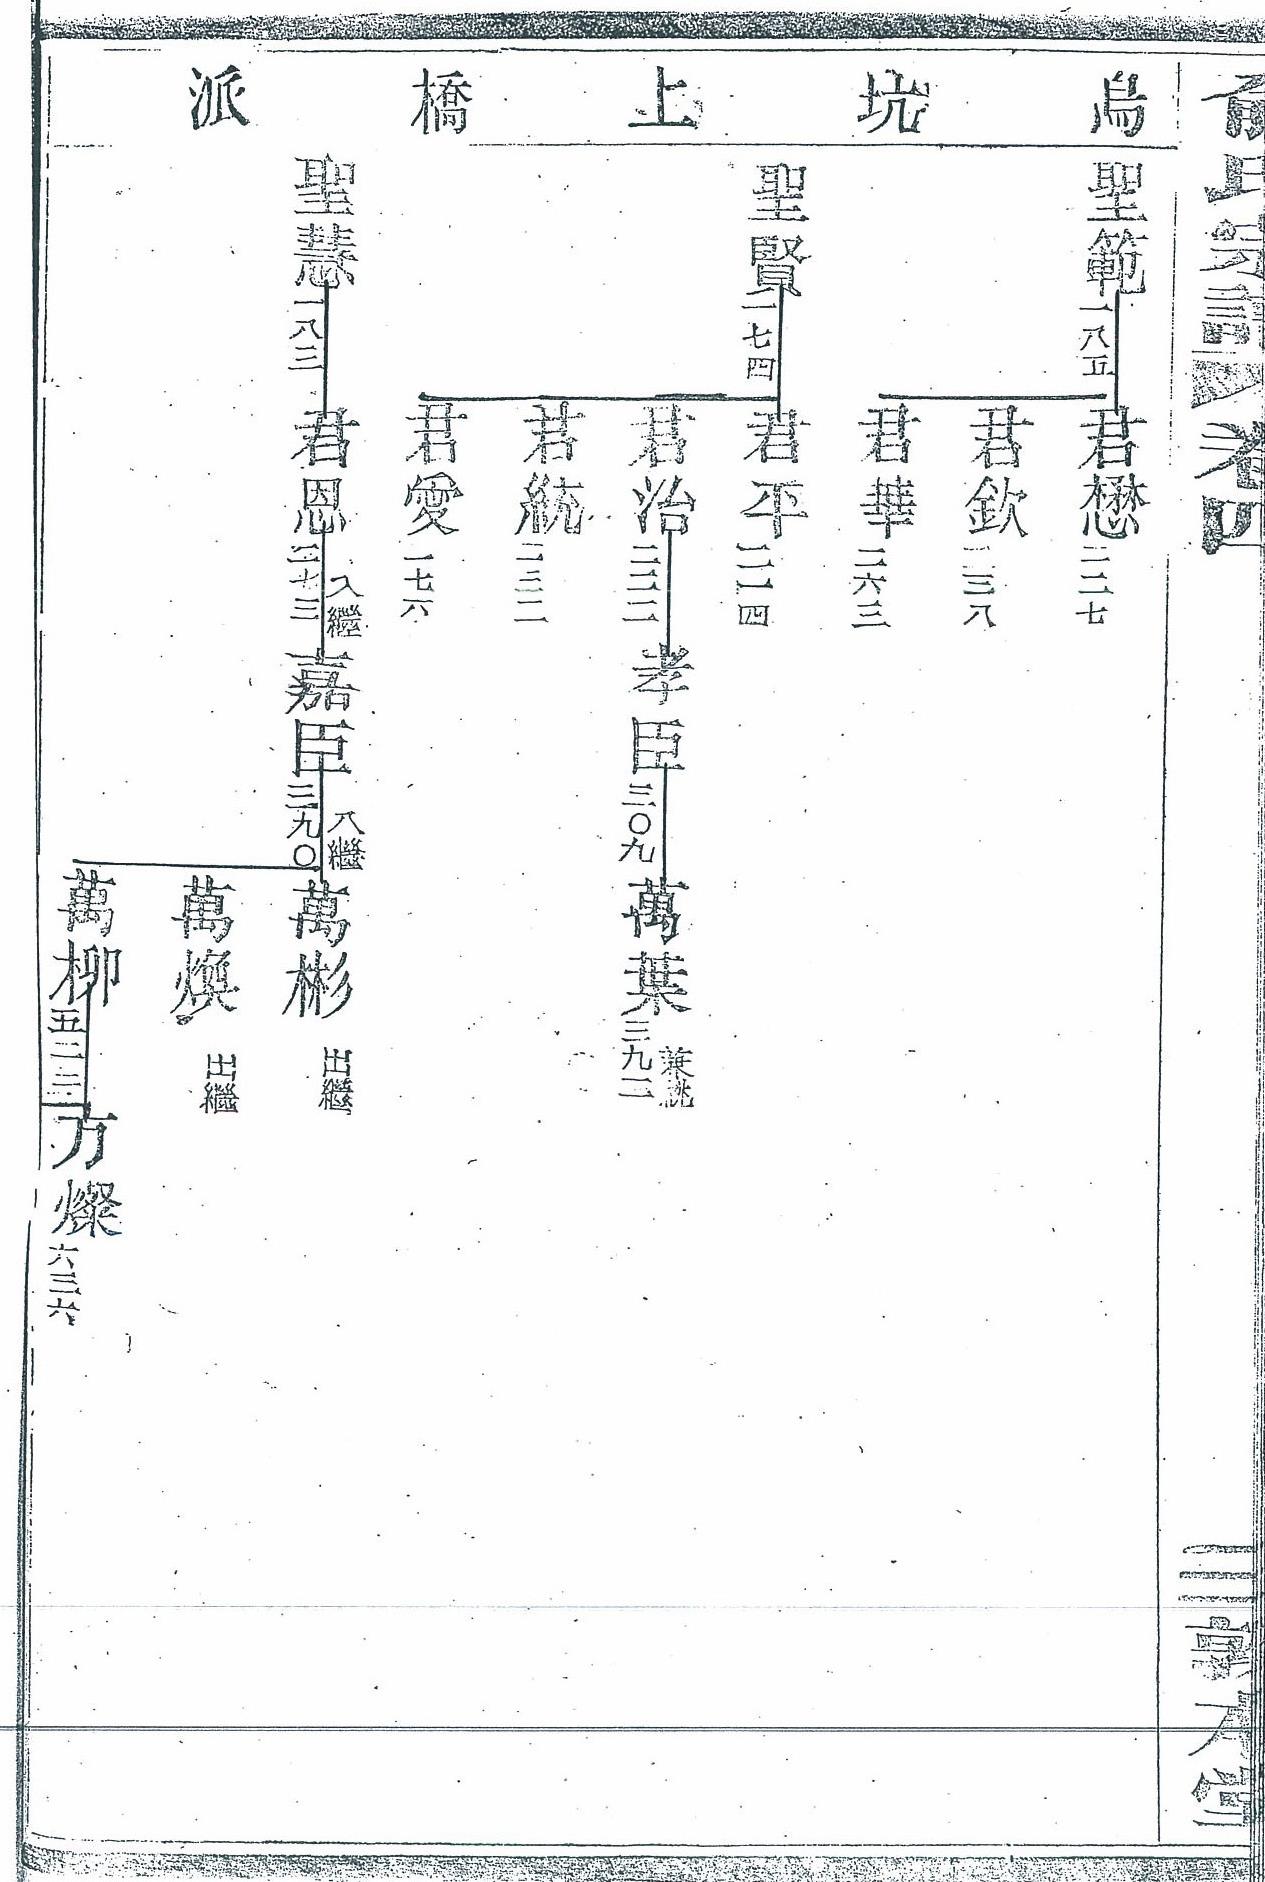 俞氏宗譜 卷四
三 敦本堂
烏坑上橋派
聖範 一八五
君懋 二二七
君欽 二三八
君華 二六三
聖賢 一七四
君平 二一四
君治 二二二
孝臣 三〇九
萬葉 三九二 兼祧
君統 二三二
君愛 一七六
聖慧 一八三
君恩 二七三 入繼
嘉臣 三九〇 入繼
萬彬 出繼
萬煥 出繼
萬柳 五二三
方燦 六三六